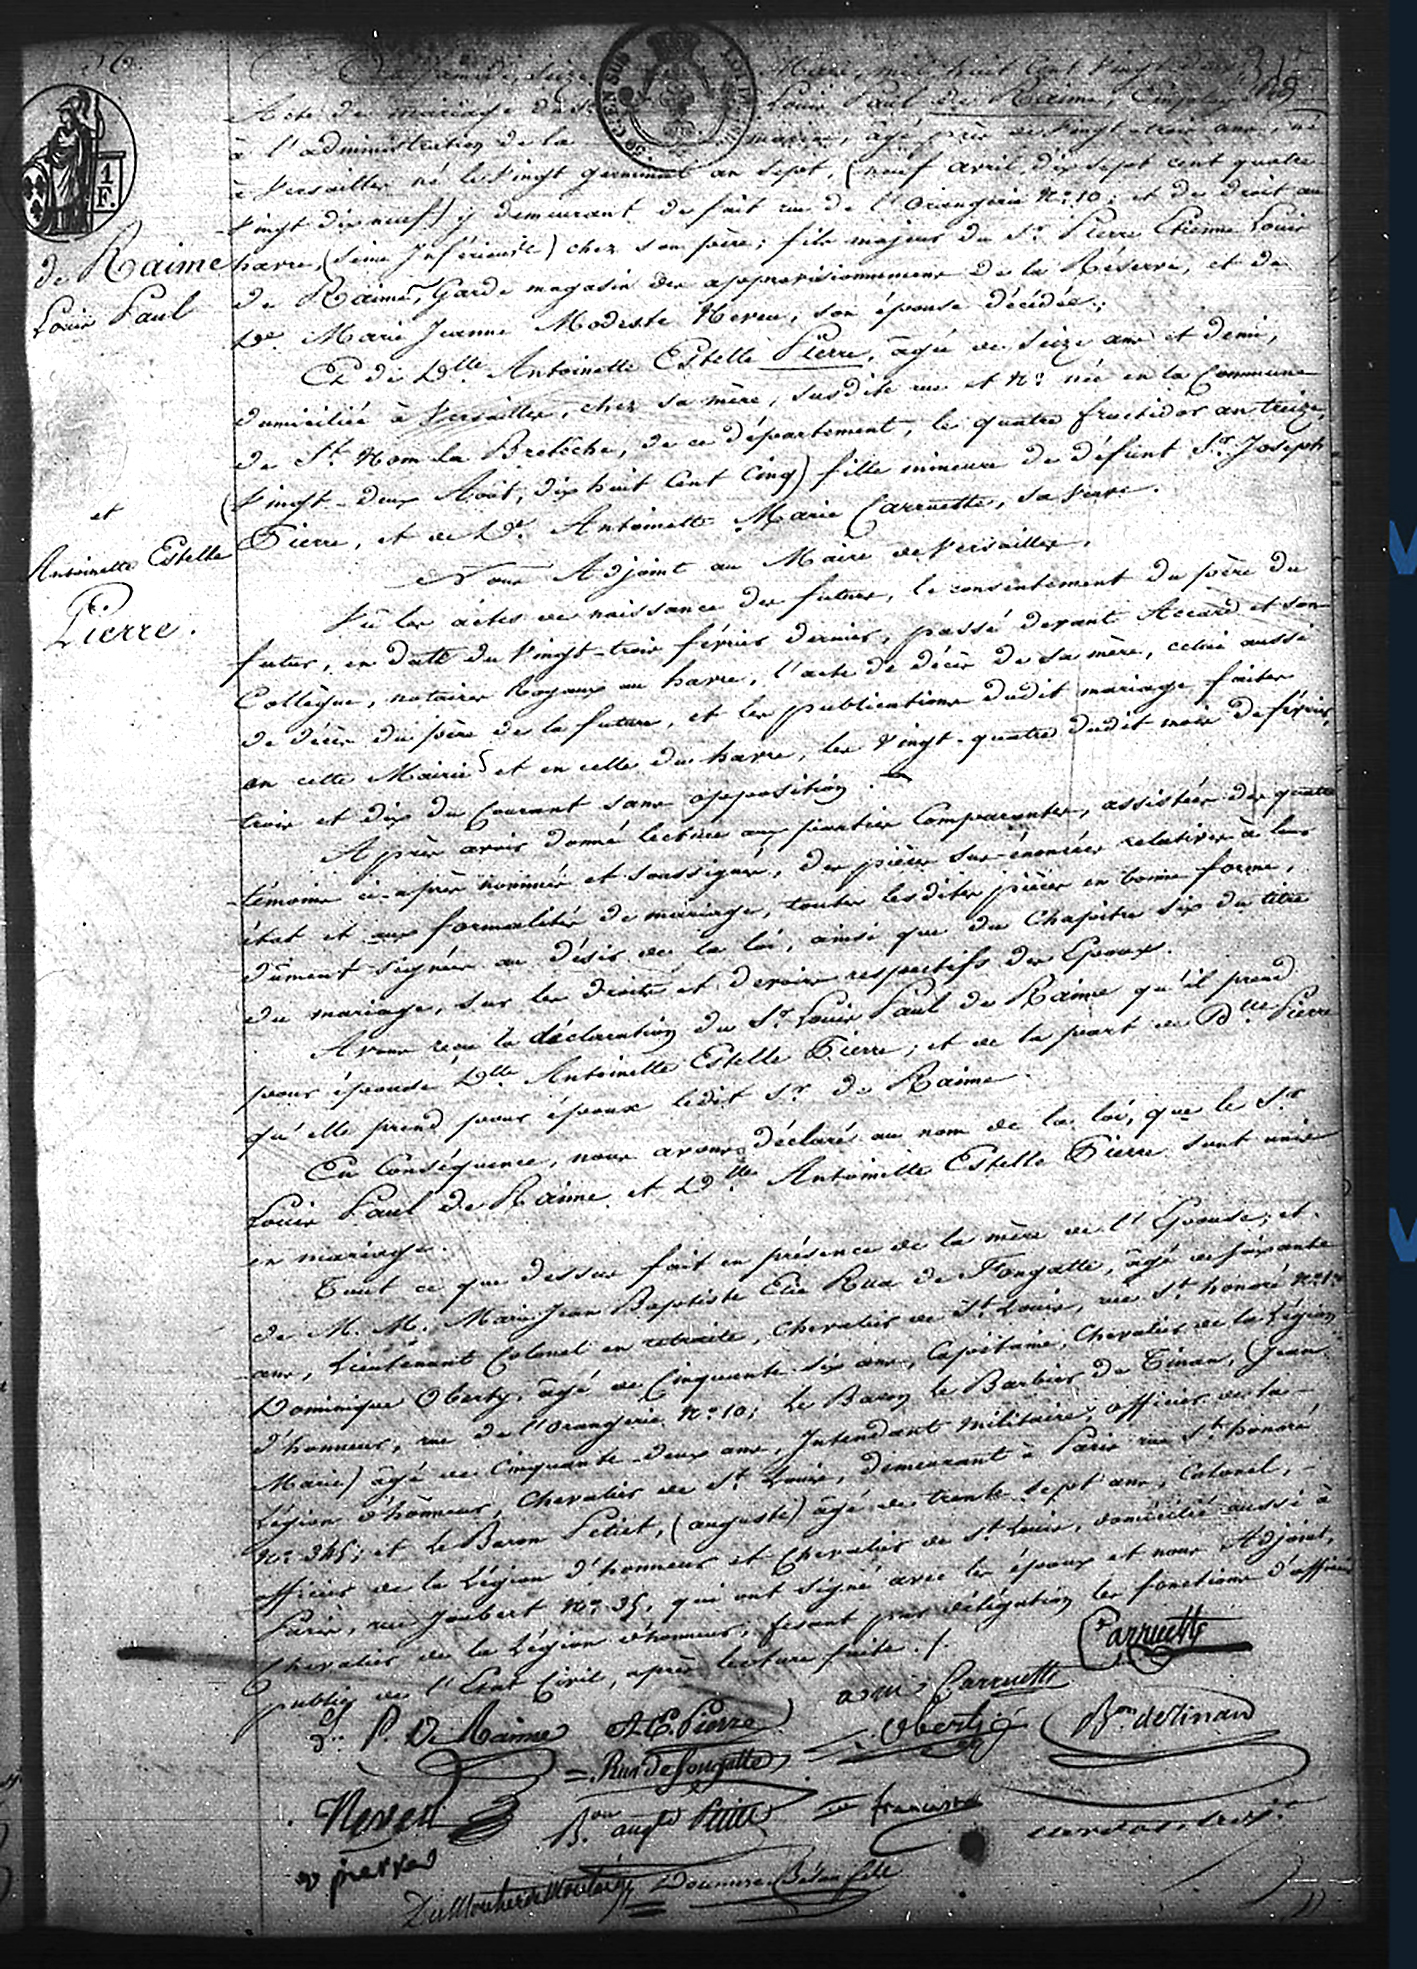 Du Samedi, seize Mars, mil huit cent vingt deux
Acte de mariage du Sr. Louis Paul de Raime, Employé
à l'administration de la marine, âgé près de vingt-trois ans, né
à Versailles né le vingt germinal an sept, (neuf avril, dix sept cent quatre
vingt dix neuf) y demeurant de fait rue de l'Orangerie No. 10; et de droit au
havre, (Seine Inférieure) chez son père; fils majeur du Sr. Pierre Etienne Louis
de Raime, Garde magasin des approvisionnemens de la Réserve, et de
De. Marie Jeanne Modeste Neveu, son épouse décédée;
Et de Dlle. Antoinette Estelle Pierre, âgée de seize ans et demi,
domiciliée à Versailles, chez sa mère, susdite rue et No. née en la Commune
de St. Nom la Bretèche, de ce département, le quatre fructidor an treize,
(vingt-deux Août, dix huit Cent Cinq) fille mineure de défunt Sr. Joseph
Pierre, et de De. Antoinette Marie Carruette, sa veuve.
Nous Adjoint au Maire de Versailles,
Vu les actes de naissance des futurs, le consentement du père du
futur, en date du vingt-trois février dernier, passé devant Accard et son
Collègue, notaires Royaux au havre, l'acte de décès de sa mère, celui aussi
de décès du père de la future, et les publications dudit mariage faites
en cette Mairie et en celle du havre, les vingt-quatre dudit mois de février,
trois et dix du Courant sans opposition.
Après avoir donné lecture aux parties Comparantes, assistées des quatre
témoins ci-après nommés et soussignés, des pièces sus-énoncées relatives à leur
état et aux formalités de mariage, toutes lesdites pièces en bonne forme,
dûment signées au désir de la loi; ainsi que du Chapitre six du titre
du mariage, sur les droits et devoirs respectifs des Epoux.
Avons reçu la déclaration du Sr. Louis Paul de Raime qu'il prend
pour épouse Dlle. Antoinette Estelle Pierre; et de la part de Dlle. Pierre
qu'elle prend pour époux ledit Sr. de Raime.
En Conséquence, nous avons déclaré au nom de la loi, que le Sr.
Louis Paul de Raime et Dlle. Antoinette Estelle Pierre sont unis
en mariage.
Tout ce que dessus fait en présence de la mère de l'Epouse; et
de M. M. Marie Jean Baptiste Elie Rua de Fongatte, âgé de soixante
ans, Lieutenant Colonel en retraite, Chevalier de St. Louis, rue St. honoré
Dominique Oberty, âgé de Cinquante six ans, Capitaine, Chevalier de la Légion
d'honneur, rue de l'Orangerie No. 10; Le Baron le Barbier de Tinan, (Jean
Marie) âgé de Cinquante-deux ans, Intendant Militaire, officier de la
Légion d'honneur, Chevalier de St. Louis, demeurant à Paris rue St. honoré
No. 345; et Le Baron Petiet, (auguste) âgé de trente sept ans, Colonel,
officier de la Légion d'honneur et Chevalier de St. Louis, domicilié aussi à
Paris, rue Joubert No. 35, qui ont signé avec les époux et nous Adjoint,
Chevalier de la Légion d'honneur, fesant par délégation les fonctions d'officier
public de l'Etat Civil, après lecture faite./.
de Raime
Louis Paul
et
Antoinette Estelle
Pierre.
1
F.
Carruette
a m Carruette
L. P. De Raime A.E. Pierre Oberty Bon. deTinan
Rua de Fongatte
Neveu Bon. augte Petiet
pierre